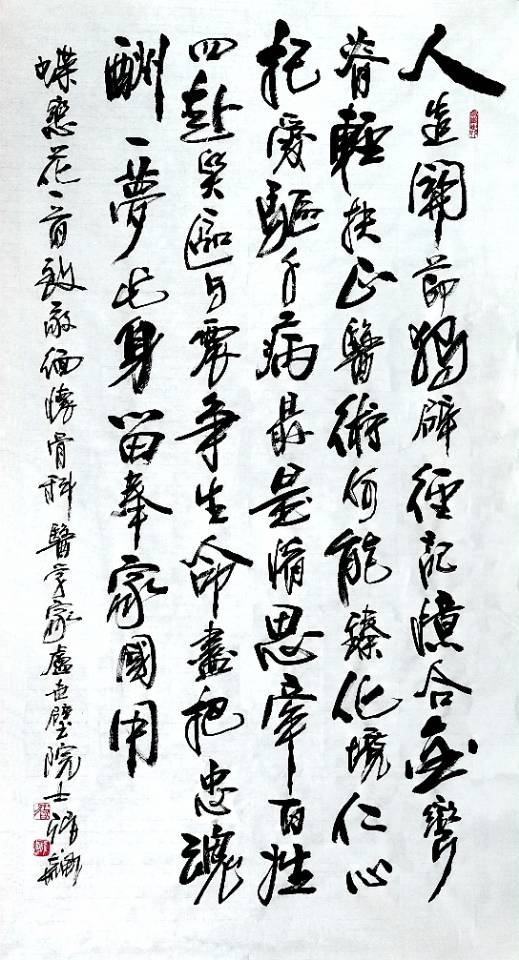 人造關節獨辟徑記憶合金彎
脊輕扶正醫術何能臻化境仁心
把愛驅千病最是情思牽百姓
四赴災區與震爭生命盡把忠魂
酬一夢此身留奉家國用
蝶戀花一首致敬緬懷骨科醫學家盧世璧院士